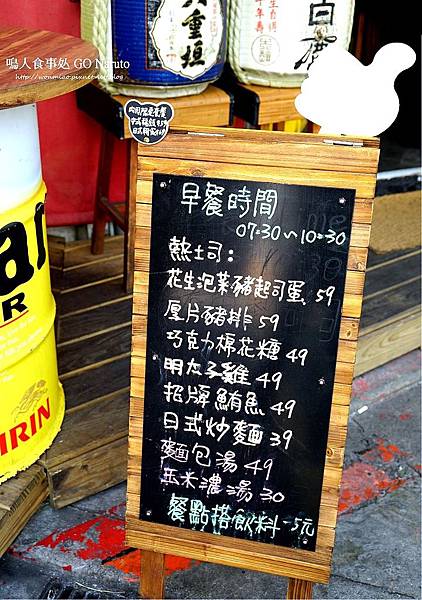 鳴人食事処 GO Naruto
重垣
白鹿
早餐時間
07:30～10:30
熱土司：
花生泡菜豬起司蛋. 59
厚片豬排 59
巧克力棉花糖 49
明太子雞 49
招牌鮪魚 49
日式炒麵 39
麵包湯 49
玉米濃湯 30
餐點搭飲料-5元
KIRIN